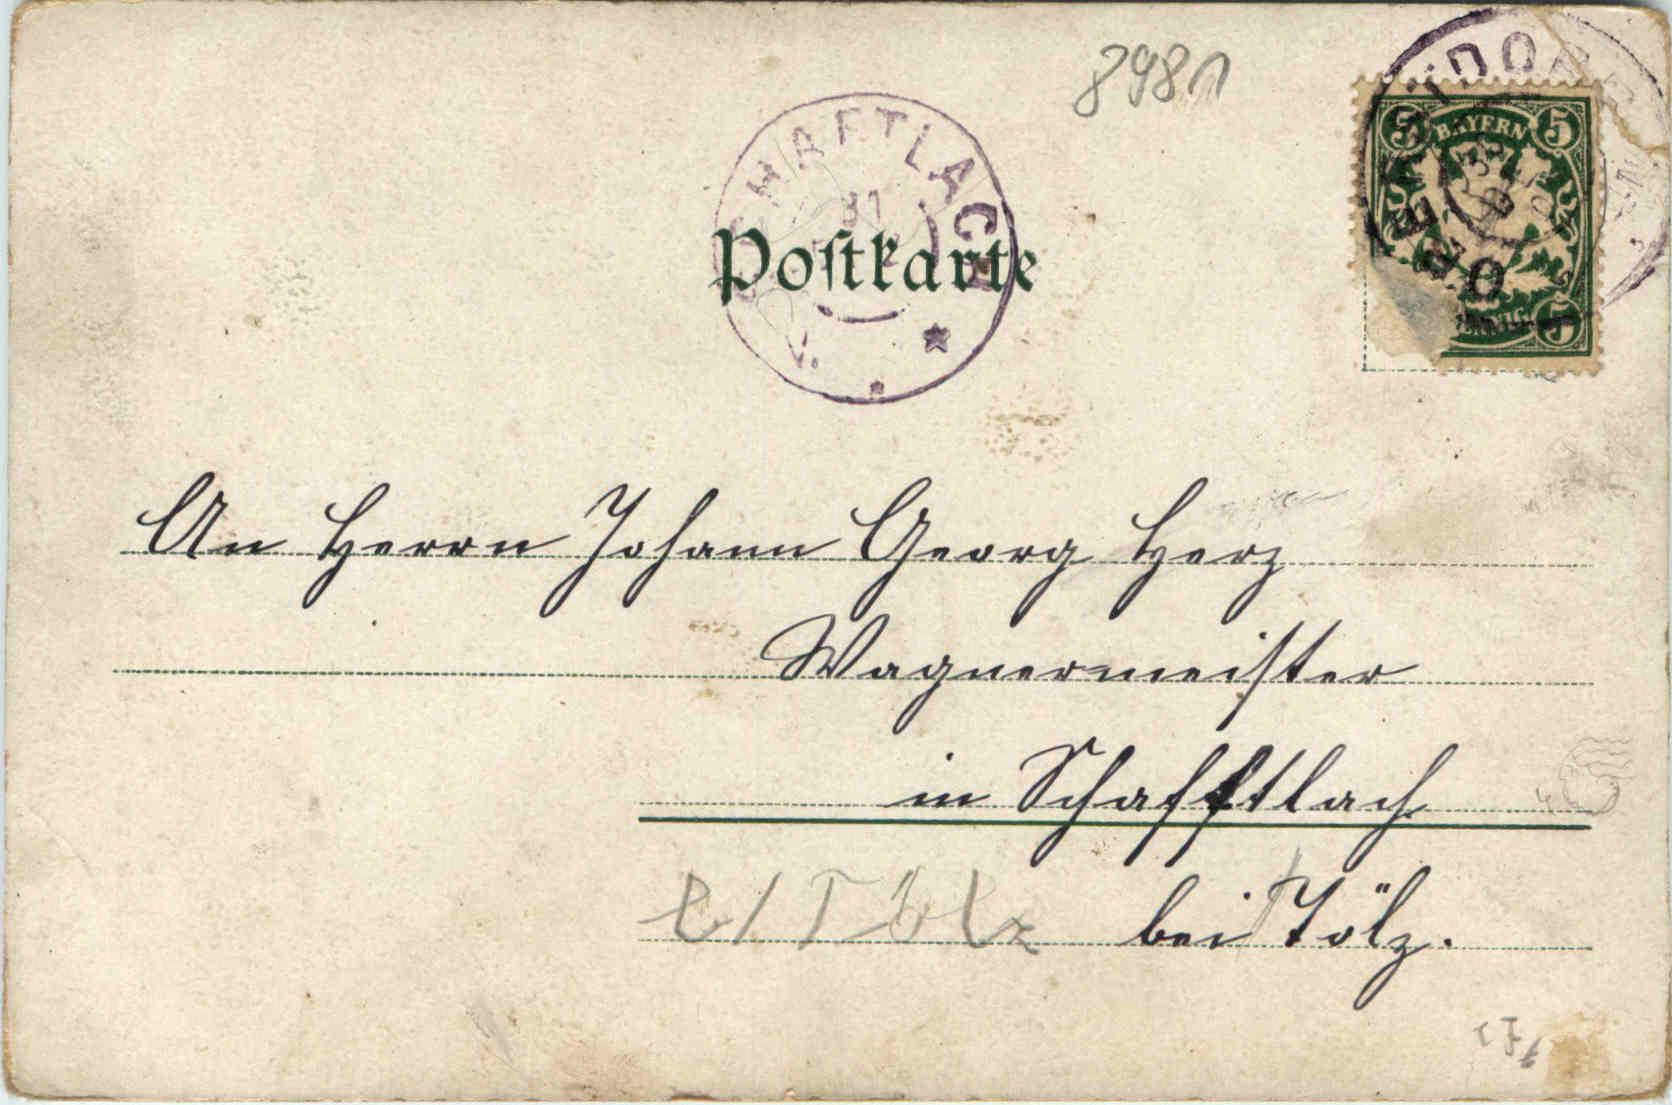 8981
SCHAFTLACH
31
BAYERN
5
5
5
Postkarte
An Herrn Johann Georg Herz
Wagnermeister
in Schaftlach
bei Tölz.
b/Tölz